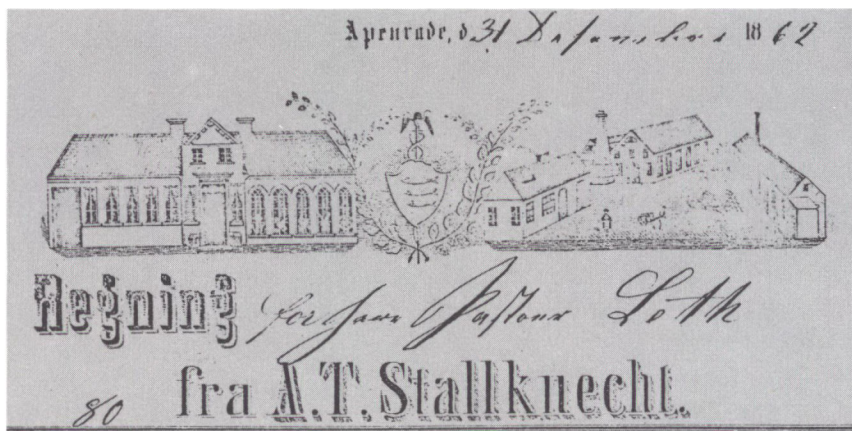 Apenrade, d. 31 Desember 1862
Regning for Herr Pastour Loth
80 fra A.T. Stallknecht.